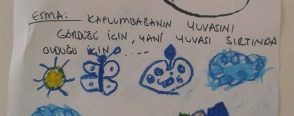 ESMA: KAPLUMBAĞANIN YUVASINI
GÖRDÜĞÜ İÇİN, YANİ YUVASI SIRTINDA
OLDUĞU İÇİN.....